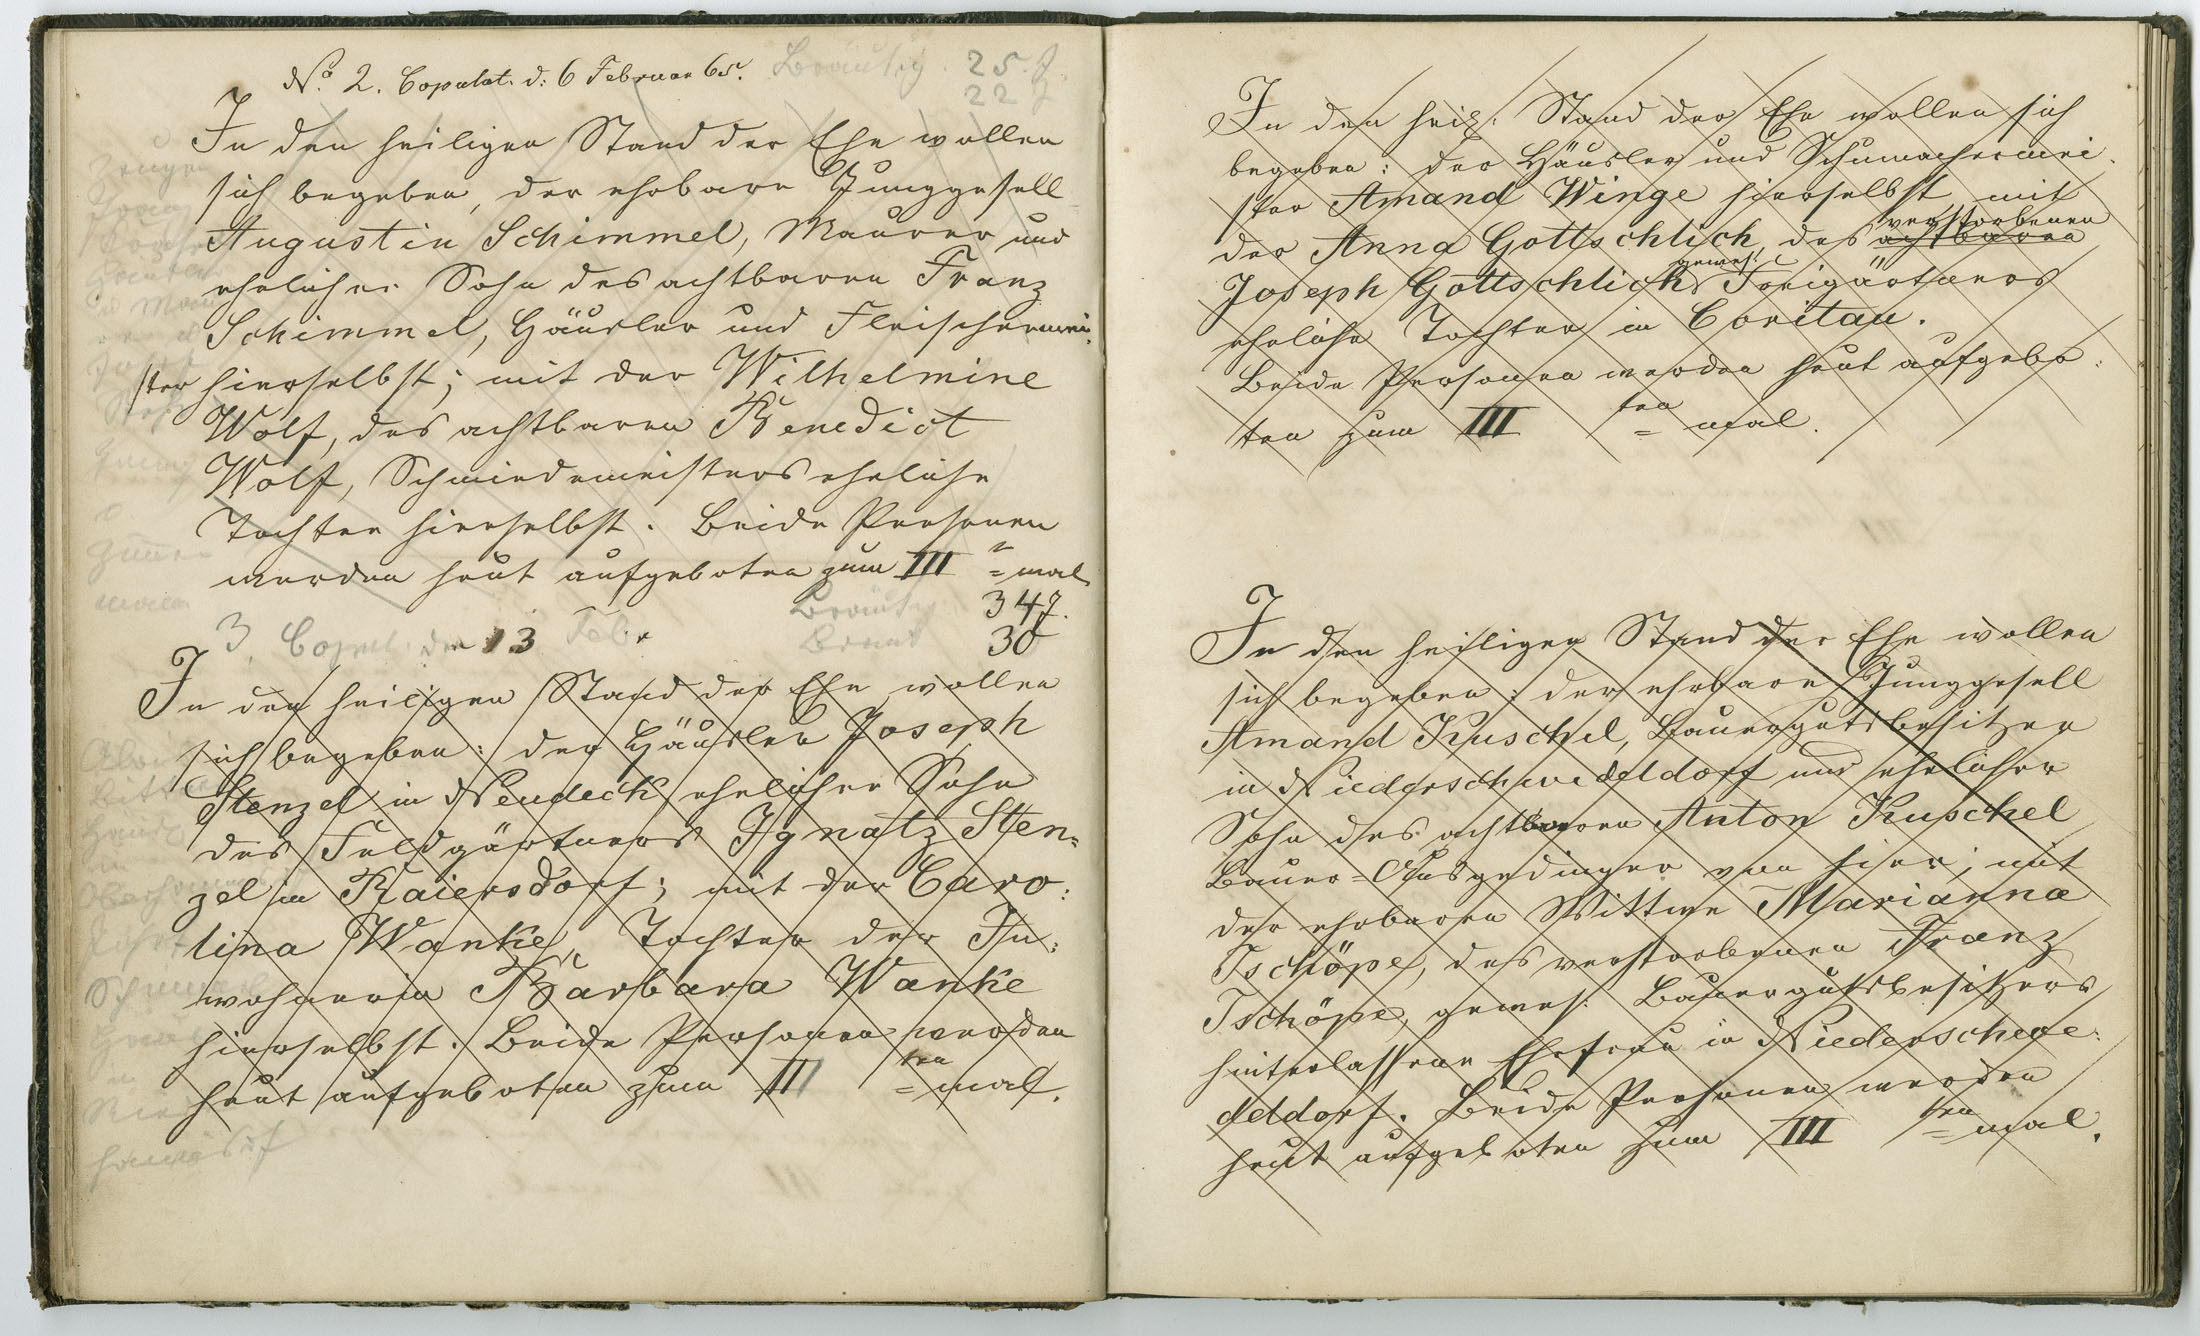 No. 2. Copulat. d: 6 Februar 65. Bräutig. 25. J.
22 J
In den heiligen Stand der Ehe wollen
sich begeben, der ehrbare Junggesell
Augustin Schimmel, Maurer und
ehelicher Sohn des achtbaren Franz
Schimmel, Häusler und Fleischermei-
ster hierselbst; mit der Wilhelmine
Wolf, des achtbaren Benedict
Wolf, Schmiedemeisters eheliche
Tochter hierselbst. Beide Personen
werden heut aufgeboten zum III =mal
Bräutig. 34 J.
3. Copul. den 13 Febr Braut 30
In den heiligen Stand der Ehe wollen
sich begeben: der Häusler Joseph
Stenzel in Neudeck ehelicher Sohn
des Feldgärtners Ignatz Sten=
zel in Raiersdorf; mit der Caro:
lina Wanke, Tochter der In:
wohnerin Barbara Wanke
hierselbst. Beide Personen werden
heut aufgeboten zum III ten =mal.
In den heil. Stand der Ehe wollen sich
begeben: der Häusler und Schumachermei-
ster Amand Winge hierselbst mit
der Anna Gottschlich, des achtbaren verstorbenen
Joseph Gottschlich gewes. Freigärtners
eheliche Tochter in Coritau.
Beide Personen werden heut aufgebo:
ten zum III ten = mal.
In den heiligen Stand der Ehe wollen
sich begeben: der ehrbare Junggesell
Amand Kuschel, Bauergutsbesitzer
in Niederschwedeldorf und ehelicher
Sohn des achtbaren Anton Kuschel
Bauer=Ausgedinger von hier; mit
der ehrbaren Wittwe Marianna
Tschöpe, des verstorbenen Franz
Tschöpe, gewes: Bauergutsbesitzers
hinterlassene Ehefrau in Niederschwe:
deldorf. Beide Personen werden
heut aufgeboten zum III ten = mal.